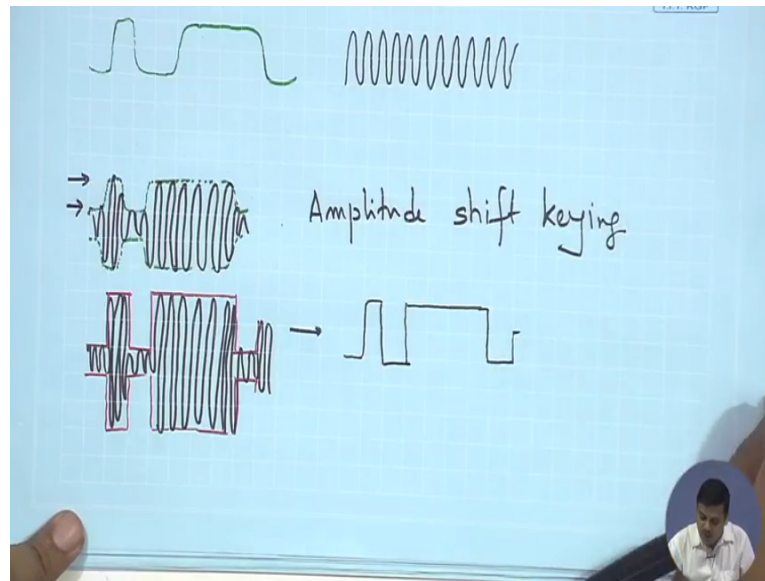 Amplitude shift keying